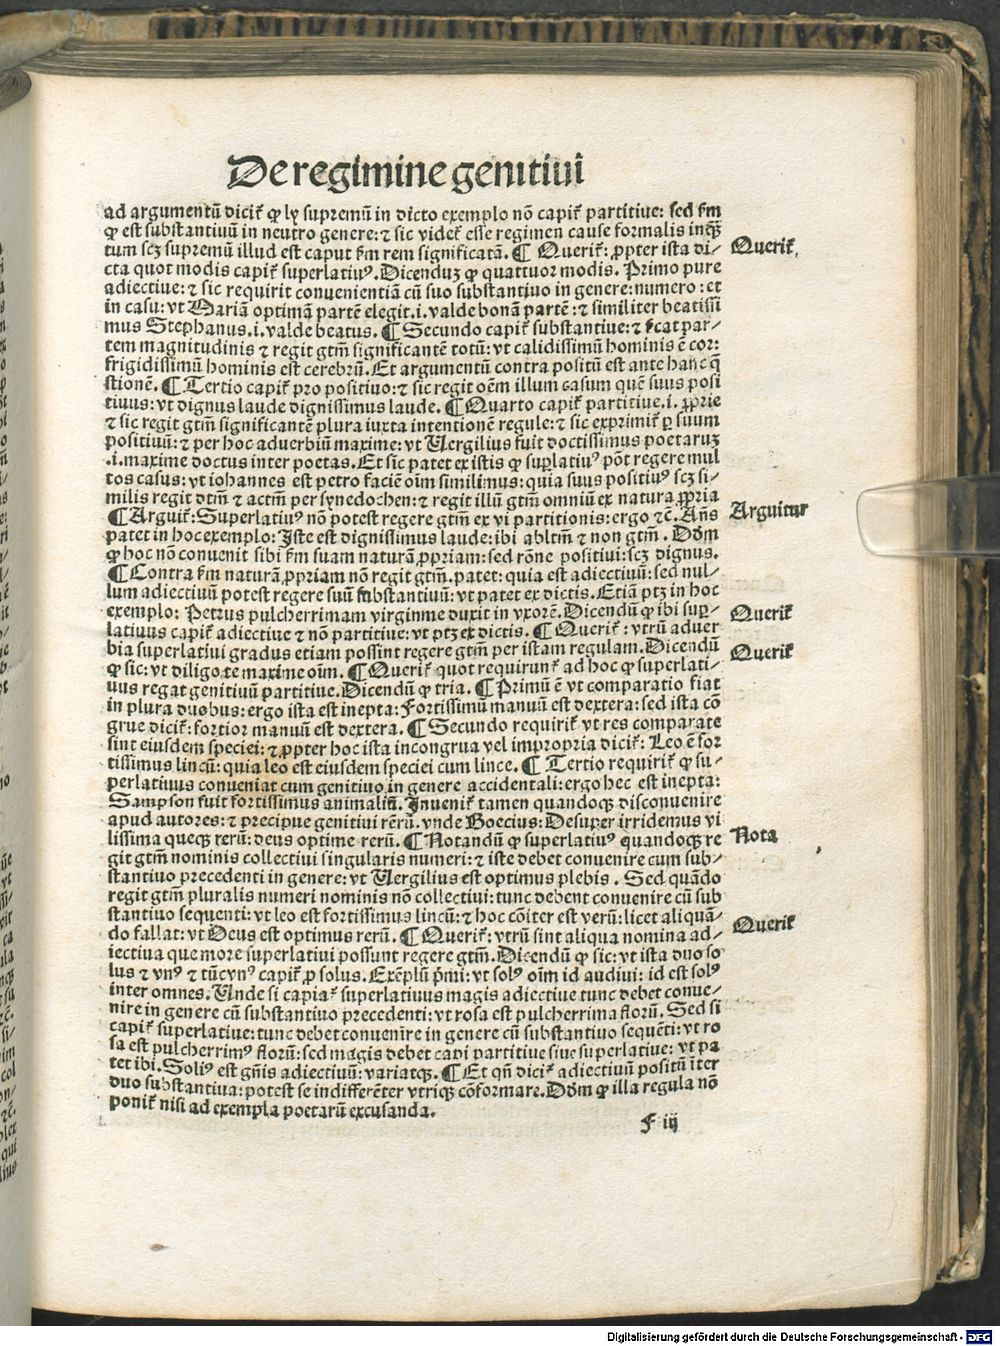 De regimine genitiui
ad argumentū dicit̄ ꝙ ly supremū in dicto exemplo nō capit̄ partitiue: sed ẜm
ꝙ est substantiuū in neutro genere: ⁊ sic videt̄ esse regimen cause formalis inqȝ
tum scȝ supremū illud est caput ẜm rem significatā. ¶ Querit̄: ꝓpter ista di⸗
Querit̄.
cta quot modis capit̄ superlatiuꝰ. Dicenduȝ ꝙ quattuor modis. Primo pure
adiectiue: ⁊ sic requirit conuenientiā cū suo substantiuo in genere: numero: et
in casu: vt Mariā optimā partē elegit .i. valde bonā partē: ⁊ similiter beatissi
mus Stephanus .i. valde beatus. ¶ Secundo capit̄ substantiue: ⁊ ẜcat par⸗
tem magnitudinis ⁊ regit gtm̄ significantē totū: vt calidissimū hominis ē cor:
frigidissimū hominis est cerebrū. Et argumentū contra positū est ante hanc q̄
stionē. ¶ Tertio capit̄ pro positiuo: ⁊ sic regit oēm illum casum quē suus posi
tiuus: vt dignus laude dignissimus laude. ¶ Quarto capit̄ partitiue .i. ꝓprie
⁊ sic regit gtm̄ significantē plura iuxta intentionē regule: ⁊ sic exprimit̄ ꝑ suum
positiuū: ⁊ per hoc aduerbiū maxime: vt Uergilius fuit doctissimus poetaruȝ
.i. maxime doctus inter poetas. Et sic patet ex istis ꝙ suꝑlatiuꝰ pōt regere mul
tos casus: vt iohannes est petro faciē oīm similimus: quia suus positiuꝰ scȝ si⸗
milis regit dtm̄ ⁊ actm̄ per synedochen: ⁊ regit illū gtm̄ omniū ex natura ꝓpria
¶ Arguit̄: Superlatiuꝰ nō potest regere gtm̄ ex vi partitionis: ergo ⁊c̄. Añs
Arguitur
patet in hoc exemplo: Iste est dignissimus laude: ibi abltm̄ ⁊ non gtm̄. Dōm
ꝙ hoc nō conuenit sibi ẜm suam naturā ꝓpriam: sed rōne positiui: scȝ dignus.
¶ Contra ẜm naturā ꝓpriam nō regit gtm̄. patet: quia est adiectiuū: sed nul⸗
lum adiectiuū potest regere suū substantiuū: vt patet ex dictis. Etiā ptȝ in hoc
exemplo: Petrus pulcherrimam virginme duxit in vxorē. Dicendū ꝙ ibi suꝑ⸗
Querit̄
latiuus capit̄ adiectiue ⁊ nō partitiue: vt ptȝ ex dictis. ¶ Querit̄: vtrū aduer
bia superlatiui gradus etiam possint regere gtm̄ per istam regulam. Dicendū
Querit̄
ꝙ sic: vt diligo te maxime oīm. ¶ Querit̄ quot requirunt̄ ad hoc ꝙ superlati⸗
uus regat genitiuū partitiue. Dicendū ꝙ tria. ¶ Primū ē vt comparatio fiat
in plura duobus: ergo ista est inepta: Fortissimū manuū est dextera: sed ista cō
grue dicit̄: fortior manuū est dextera. ¶ Secundo requirit̄ vt res comparate
sint eiusdem speciei: ⁊ ꝓpter hoc ista incongrua vel impropria dicit̄: Leo ē for
tissimus lincū: quia leo est eiusdem speciei cum lince. ¶ Tertio requirit̄ ꝙ su⸗
perlatiuus conueniat cum genitiuo in genere accidentali: ergo hec est inepta:
Sampson fuit fortissimus animaliū. Inuenit̄ tamen quandoqȝ disconuenire
apud autores: ⁊ precipue genitiui rērū. vnde Boecius: Desuper irridemus vi
lissima queqȝ rerū: deus optime rerū. ¶ Notandū ꝙ superlatiuꝰ quandoqȝ re
Nota
git gtm̄ nominis collectiui singularis numeri: ⁊ iste debet conuenire cum sub⸗
stantiuo precedenti in genere: vt Uergilius est optimus plebis. Sed quādo
regit gtm̄ pluralis numeri nominis nō collectiui: tunc debent conuenire cū sub
stantiuo sequenti: vt leo est fortissimus lincū: ⁊ hoc cōiter est verū: licet aliquā⸗
do fallat: vt Deus est optimus rerū. ¶ Querit̄: vtrū sint aliqua nomina ad⸗
Querit̄
iectiua que more superlatiui possunt regere gtm̄. Dicendū ꝙ sic: vt ista duo so
lus ⁊ vnꝰ ⁊ tūc vnꝰ capit̄ ꝓ solus. Exēplū pͥmi: vt solꝰ oīm id audiui: id est solꝰ
inter omnes. Unde si capiat̄ superlatiuus magis adiectiue tunc debet conue⸗
nire in genere cū substantiuo precedenti: vt rosa est pulcherrima florū. Sed si
capit̄ superlatiue: tunc debet conuenire in genere cū substantiuo sequēti: vt ro
sa est pulcherrimꝰ florū: sed magis debet capi partitiue siue superlatiue: vt pa
tet ibi. Soliꝰ est gn̄is adiectiuū: variatqȝ. ¶ Et qn̄ dicit̄ adiectiuū positū īter
duo substantiua: potest se indifferēter vtriqȝ cōformare. Dōm ꝙ illa regula nō
ponit̄ nisi ad exempla poetarū excusanda.
F iij
Digitalisierung gefördert durch die Deutsche Forschungsgemeinschaft - DFG